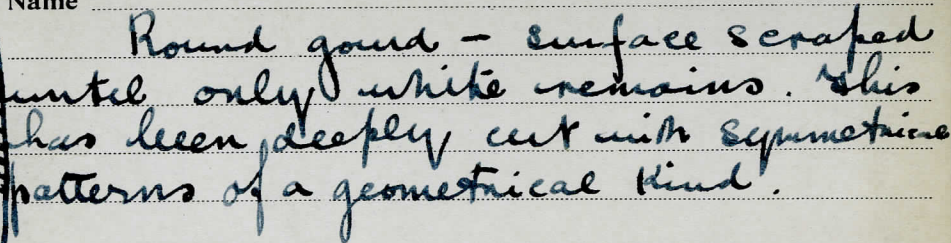 Name
Round gourd - surface scraped
until only white remains. This
has been deeply cut with symmetrical
patterns of a geometrical kind.